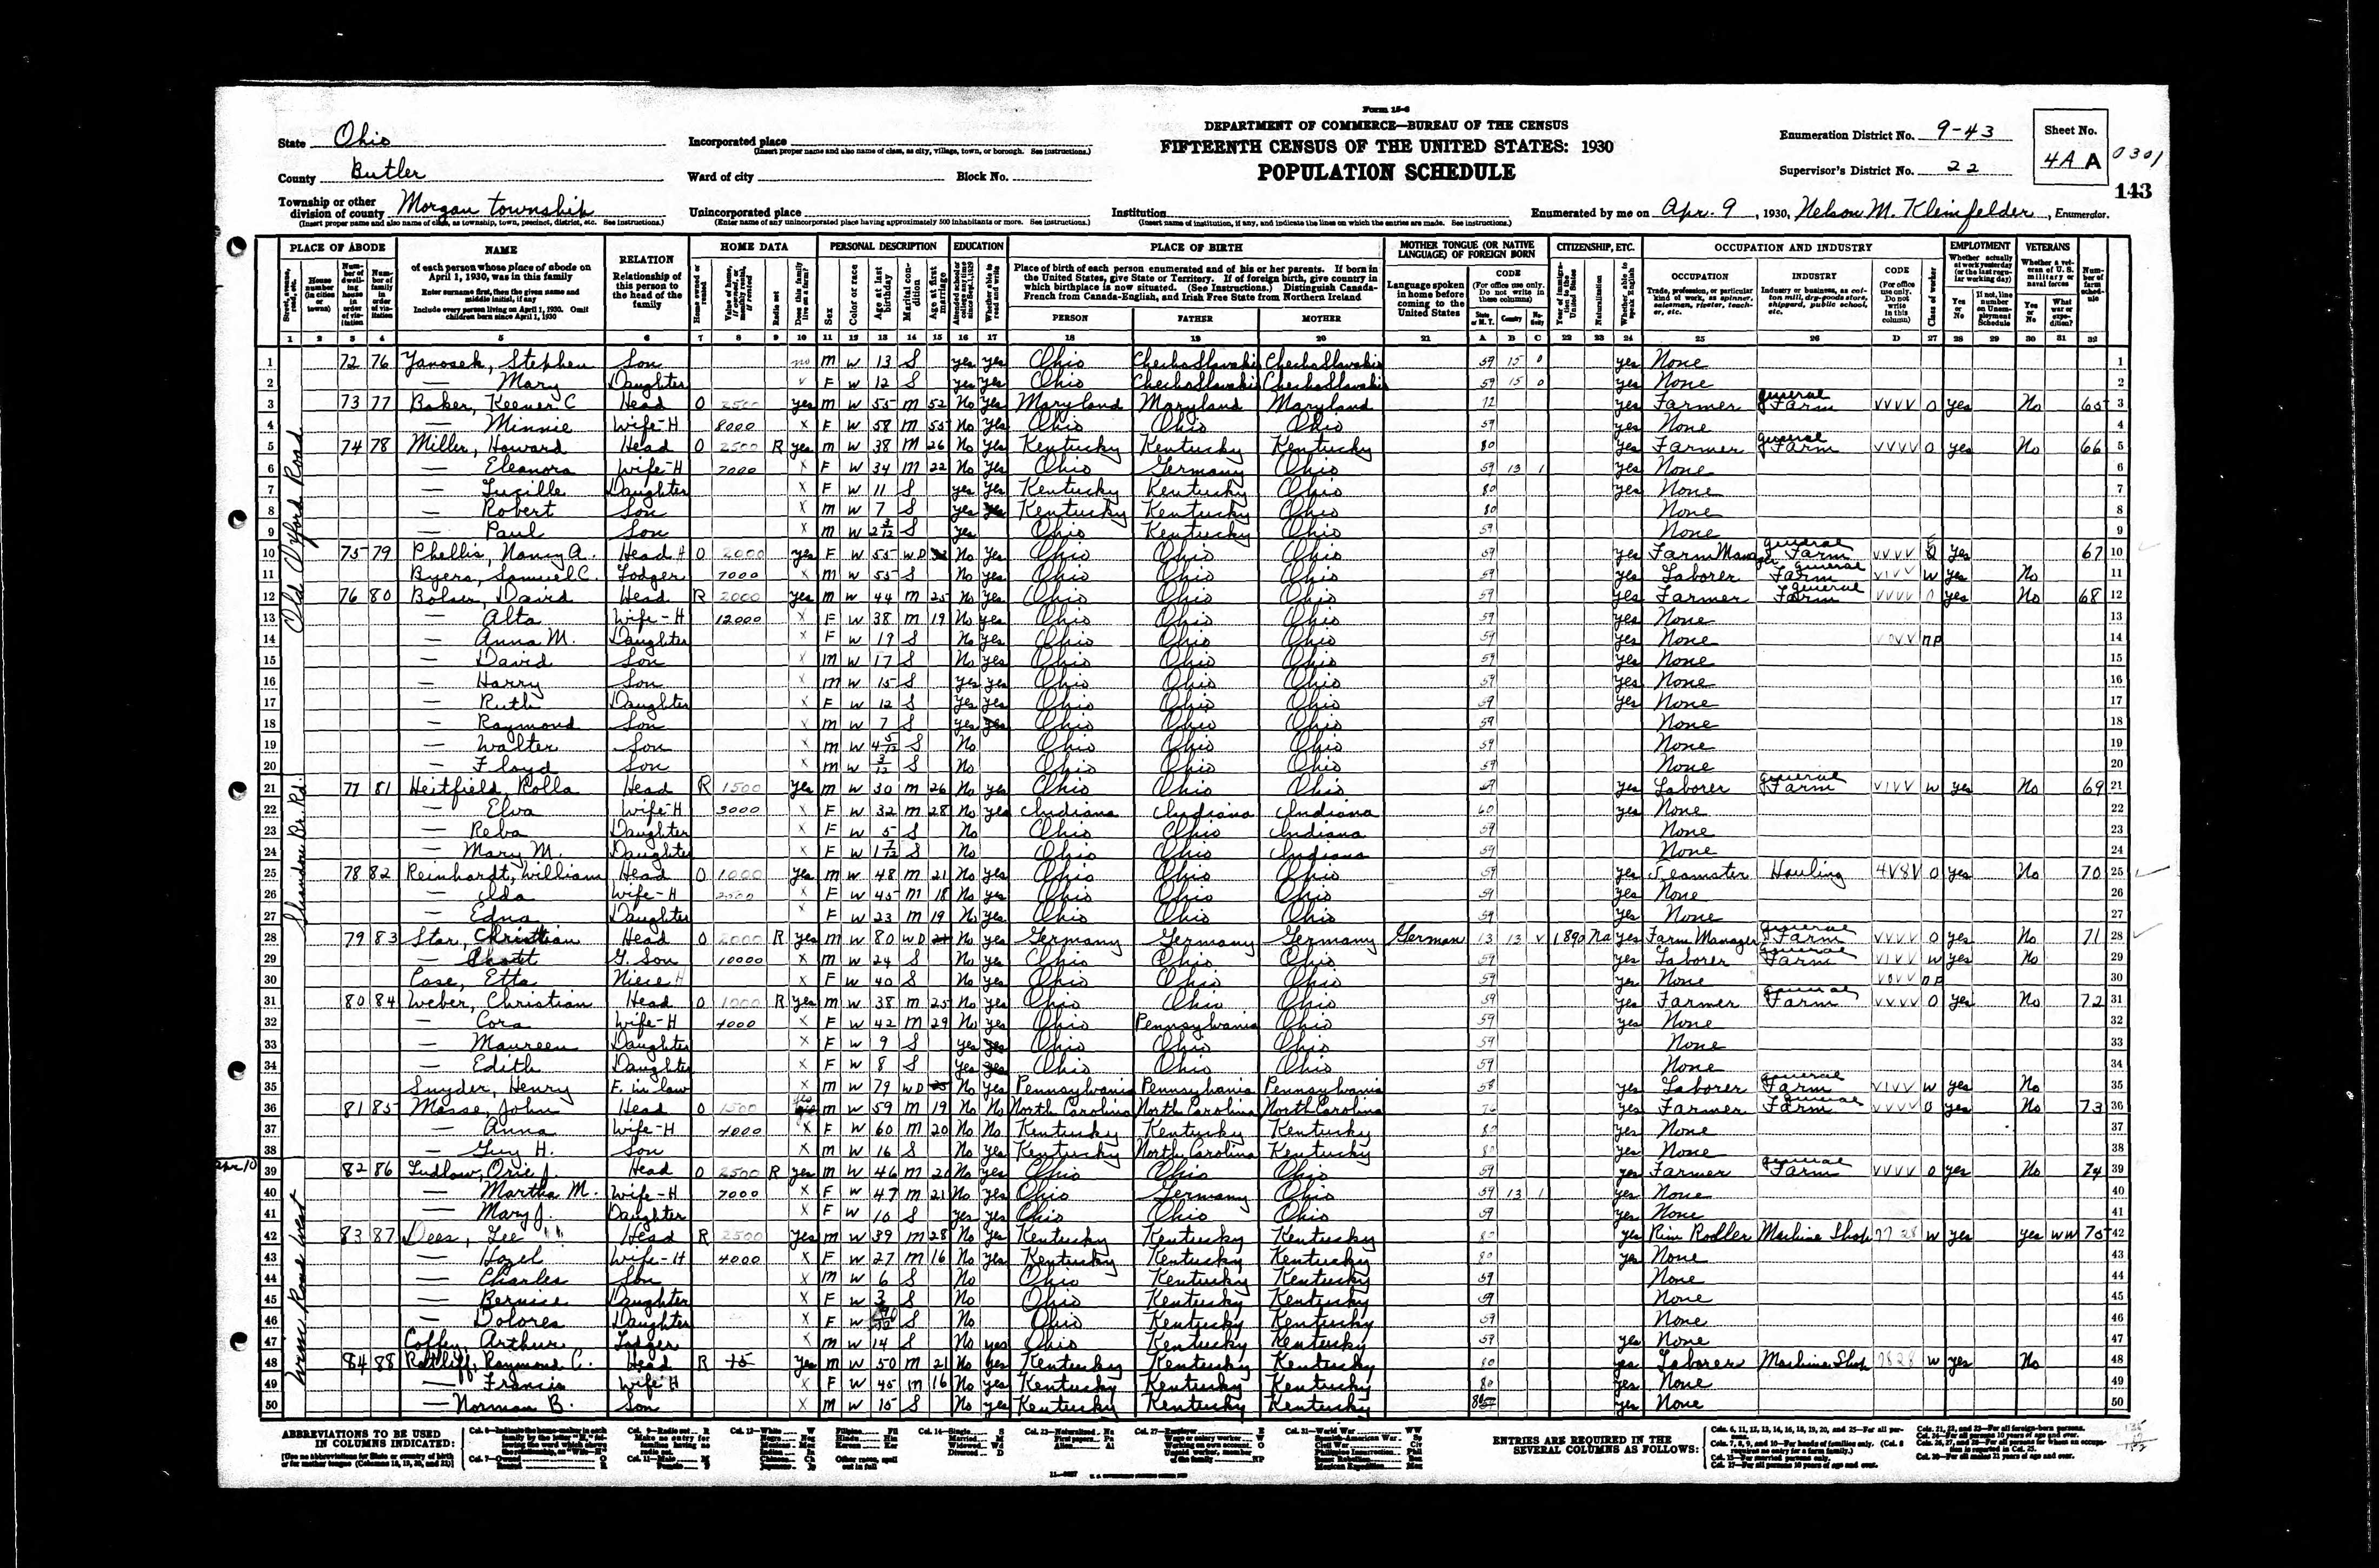 Form 15-6
DEPARTMENT OF COMMERCE—BUREAU OF THE CENSUS
FIFTEENTH CENSUS OF THE UNITED STATES: 1930
POPULATION SCHEDULE
State Ohio
County Butler
Township or other division of county Morgan township
(Insert proper name and also name of class, as township, town, precinct, district, etc. See instructions.)
Incorporated place
(Insert proper name and also name of class, as city, village, town, or borough. See instructions.)
Ward of city Block No.
Unincorporated place
(Enter name of any unincorporated place having approximately 500 inhabitants or more. See instructions.)
Institution
(Insert name of institution, if any, and indicate the lines on which the entries are made. See instructions.)
Enumeration District No. 9-43
Supervisor's District No. 22
Sheet No.
4A A
0301
143
Enumerated by me on Apr. 9, 1930, Nelson M. Kleinfelder, Enumerator.
PLACE OF ABODE NAME RELATION HOME DATA PERSONAL DESCRIPTION EDUCATION PLACE OF BIRTH MOTHER TONGUE (OR NATIVE LANGUAGE) OF FOREIGN BORN CITIZENSHIP, ETC. OCCUPATION AND INDUSTRY EMPLOYMENT VETERANS
Old Oxford Road
Shandon Br. Rd.
1 72 76 Yanosek, Stephen Son no M W 13 S yes yes Ohio ChechoSlavakia ChechoSlavakia 59 15 0 yes None 1
2 — Mary Daughter V F W 12 S yes yes Ohio ChechoSlavakia ChechoSlavakia 59 15 0 yes None 2
3 73 77 Baker, Keener C Head O 2500 yes M W 55 M 52 No yes Maryland Maryland Maryland 72 yes Farmer general Farm VVVV O yes No 65 3
4 — Minnie Wife-H 8000 X F W 58 M 55 No yes Ohio Ohio Ohio 59 yes None 4
5 74 78 Miller, Howard Head O 2500 R yes M W 38 M 26 No yes Kentucky Kentucky Kentucky 80 yes Farmer general Farm VVVV O yes No 66 5
6 — Eleanora Wife-H 7000 X F W 34 M 22 No yes Ohio Germany Ohio 59 13 1 yes None 6
7 — Lucille Daughter X F W 11 S yes yes Kentucky Kentucky Ohio 80 yes None 7
8 — Robert Son X M W 7 S yes Kentucky Kentucky Ohio 80 None 8
9 — Paul Son X M W 2 3/12 S yes Ohio Kentucky Ohio 59 None 9
10 75 79 Phellis, Nancy A. Head H O 2000 yes F W 55 WD No yes Ohio Ohio Ohio 59 yes Farm Manager general Farm VVVV yes 67 10
11 Byers, Samuel C. Lodger 7000 X M W 55 S No yes Ohio Ohio Ohio 59 yes Laborer general Farm VIVV W yes No 11
12 76 80 Bolser, David Head R 2000 yes M W 44 M 25 No yes Ohio Ohio Ohio 59 yes Farmer general Farm VVVV O yes No 68 12
13 — Alta Wife-H 12000 X F W 38 M 19 No yes Ohio Ohio Ohio 59 yes None 13
14 — Anna M. Daughter X F W 19 S No yes Ohio Ohio Ohio 59 yes None NP 14
15 — David Son X M W 17 S No yes Ohio Ohio Ohio 59 yes None 15
16 — Harry Son X M W 15 S yes yes Ohio Ohio Ohio 59 yes None 16
17 — Ruth Daughter X F W 12 S yes yes Ohio Ohio Ohio 59 yes None 17
18 — Raymond Son X M W 7 S yes Ohio Ohio Ohio 59 None 18
19 — Walter Son X M W 4 5/12 S No Ohio Ohio Ohio 59 None 19
20 — Floyd Son X M W 3/12 S No Ohio Ohio Ohio 59 None 20
21 77 81 Heitfield, Rolla Head R 1500 yes M W 30 M 26 No yes Ohio Ohio Ohio 59 yes Laborer general Farm VIVV W yes No 69 21
22 — Elva Wife-H 3000 X F W 32 M 28 No yes Indiana Indiana Indiana 60 yes None 22
23 — Reba Daughter X F W 5 S No Ohio Ohio Indiana 59 None 23
24 — Mary M. Daughter X F W 1 7/12 S No Ohio Ohio Indiana 59 None 24
25 78 82 Reinhardt, William Head O 1000 yes M W 48 M 21 No yes Ohio Ohio Ohio 59 yes Teamster Hauling 4V8V O yes No 70 25
26 — Ida Wife-H 2500 X F W 45 M 18 No yes Ohio Ohio Ohio 59 yes None 26
27 — Edna Daughter X F W 23 M 19 No yes Ohio Ohio Ohio 59 yes None 27
28 79 83 Star, Christian Head O 2000 R yes M W 80 WD No yes Germany Germany Germany German 13 13 V 1890 Na yes Farm Manager general Farm VVVV O yes No 71 28
29 — G. Son 10000 X M W 24 S No yes Ohio Ohio Ohio 59 yes Laborer general Farm VIVV W yes No 29
30 Case, Etta Niece H F W 40 S No yes Ohio Ohio Ohio 59 yes None NP 30
31 80 84 Weber, Christian Head O 1000 R yes M W 38 M 25 No yes Ohio Ohio Ohio 59 yes Farmer general Farm VVVV O yes No 72 31
32 — Cora Wife-H 4000 X F W 42 M 29 No yes Ohio Pennsylvania Ohio 59 yes None 32
33 — Maureen Daughter X F W 9 S yes Ohio Ohio Ohio 59 None 33
34 — Edith Daughter X F W 8 S yes Ohio Ohio Ohio 59 None 34
35 Snyder, Henry F. in law X M W 79 WD No yes Pennsylvania Pennsylvania Pennsylvania 58 yes Laborer general Farm VIVV W yes No 35
36 81 85 Masse, John Head O 1500 yes M W 59 M 19 No No North Carolina North Carolina North Carolina 76 yes Farmer general Farm VVVV O yes No 73 36
37 — Anna Wife-H 4000 X F W 60 M 20 No No Kentucky Kentucky Kentucky 80 yes None 37
38 — Guy H. Son X M W 16 S No yes Kentucky North Carolina Kentucky 80 yes None 38
Apr 10
39 82 86 Ludlow, Orie J. Head O 2500 R yes M W 46 M 20 No yes Ohio Ohio Ohio 59 yes Farmer general Farm VVVV O yes No 74 39
40 — Martha M. Wife-H 7000 X F W 47 M 21 No yes Ohio Germany Ohio 59 13 1 yes None 40
41 — Mary J. Daughter X F W 10 S yes yes Ohio Ohio Ohio 59 yes None 41
42 83 87 Dees, Lee Head R 2500 yes M W 39 M 28 No yes Kentucky Kentucky Kentucky 80 yes Rim Rodler Machine Shop 7728 W yes yes WW 75 42
43 — Hazel Wife-H 4000 X F W 27 M 16 No yes Kentucky Kentucky Kentucky 80 yes None 43
44 — Charles Son X M W 6 S No Ohio Kentucky Kentucky 59 None 44
45 — Bernice Daughter X F W 3 S No Ohio Kentucky Kentucky 59 None 45
46 — Dolores Daughter X F W S No Ohio Kentucky Kentucky 59 None 46
47 Coffey, Arthur Lodger X M W 14 S No yes Ohio Kentucky Kentucky 59 yes None 47
48 84 88 Ratliff, Raymond C. Head R 15 yes M W 50 M 21 No yes Kentucky Kentucky Kentucky 80 yes Laborer Machine Shop 7828 W yes No 48
49 — Francis Wife H X F W 45 M 16 No yes Kentucky Kentucky Kentucky 80 yes None 49
50 — Norman B. Son X M W 15 S No yes Kentucky Kentucky Kentucky yes None 50
ABBREVIATIONS TO BE USED IN COLUMNS INDICATED:
ENTRIES ARE REQUIRED IN THE SEVERAL COLUMNS AS FOLLOWS: